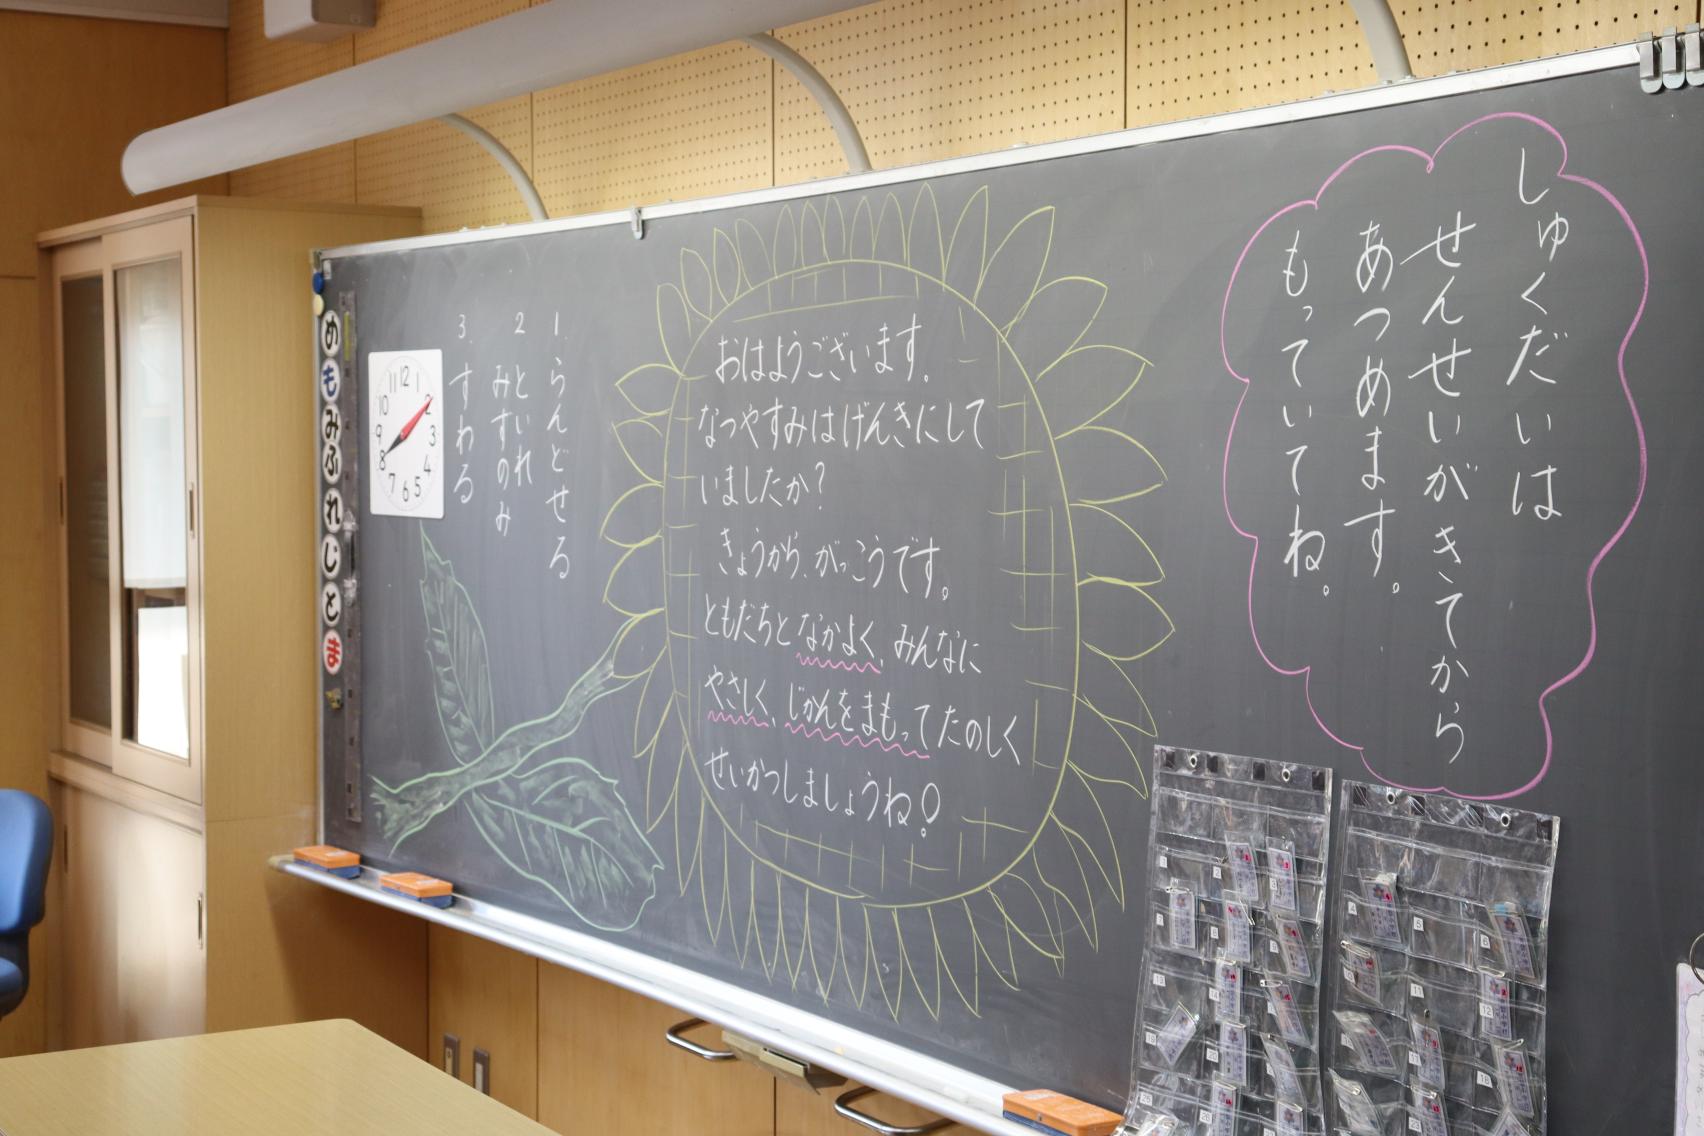 しゅくだいは
せんせいがきてから
あつめます。
もっていてね。
おはようございます。
なつやすみはげんきにして
いましたか?
きょうから、がっこうです。
ともだちとなかよく、みんなに
やさしく、じかんをまもってたのしく
せいかつしましょうね!
1. らんどせる
2 といれ
みずのみ
3. すわる
12
1
2
3
4
5
6
7
8
9
10
11
め
も
み
ふ
れ
じ
と
ま